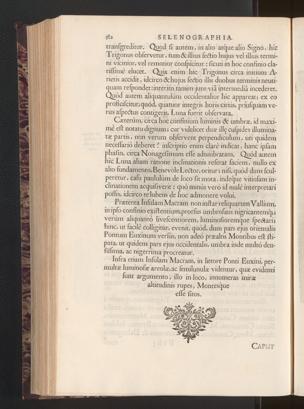 382 SELENOGRAPHIA
transgreditur. Quod si autem, in alio atque alio Signo, hic
Trigonus observetur, tum & illius sectio hujus vel illius termi-
ni vicinior, vel remotior conspicitur: sicuti in hoc confinio cla-
rissimè elucet. Quia enim hic Trigonus circa initium A-
rietis accidit, idcirco & hujus sectio illis duobus terminis neuti-
quam respondet: interim tamen juxta viâ intermediâ incederet.
Quod autem aliquantulum occidentalior hic appareat; ex eo
proficiscitur, quòd, quatuor integris horis citiùs, priusquam ve-
rus aspectus contigerit, Luna fuerit observata.
Cæterùm, circa hoc confinium luminis & umbræ, id maxi-
mè est notatu dignum; cur videlicet duæ illæ cuspides illumina-
tæ partis, non verum observent perpendiculum, uti quidem
necessariò deberet? inscriptio enim clarè indicat, hanc ipsam
phasin, circa Nonagesimum esse adumbratam. Quòd autem
hîc Luna aliam ratione inclinationis referat faciem, nullo ex
alio fundamento, Benevole Lector, oritur; nisi, quòd dum scul-
peretur, casu paululum de loco sit mota, indeque vitiosam in-
clinationem acquisiverit: quò minùs verò id malè interpretari
possis, idcirco te lubens de hoc admonere volui.
Prætereà Insulam Macram non instar reliquarum Vallium,
in ipso confinio existentium, prorsus umbrosam nigricantemque;
verùm aliquantò livescentiorem, luminosioremque spectari
hunc, ut facilè colligitur, evenit, quòd, dum pars ejus orientalis
Pontum Euxinum versùs, non adeò præaltis Montibus est sti-
pata, ut quidem pars ejus occidentalis, umbra inde multò den-
sissima, ac nigerrima procreatur.
Infra etiam Insulam Macram, in littore Ponti Euxini, per-
multæ luminosæ areolæ, ac insululæ videntur, quæ evidenti
sunt argumento, illo in loco, innumeras miræ
altitudinis rupes, Montesque
esse sitos.
CAPUT